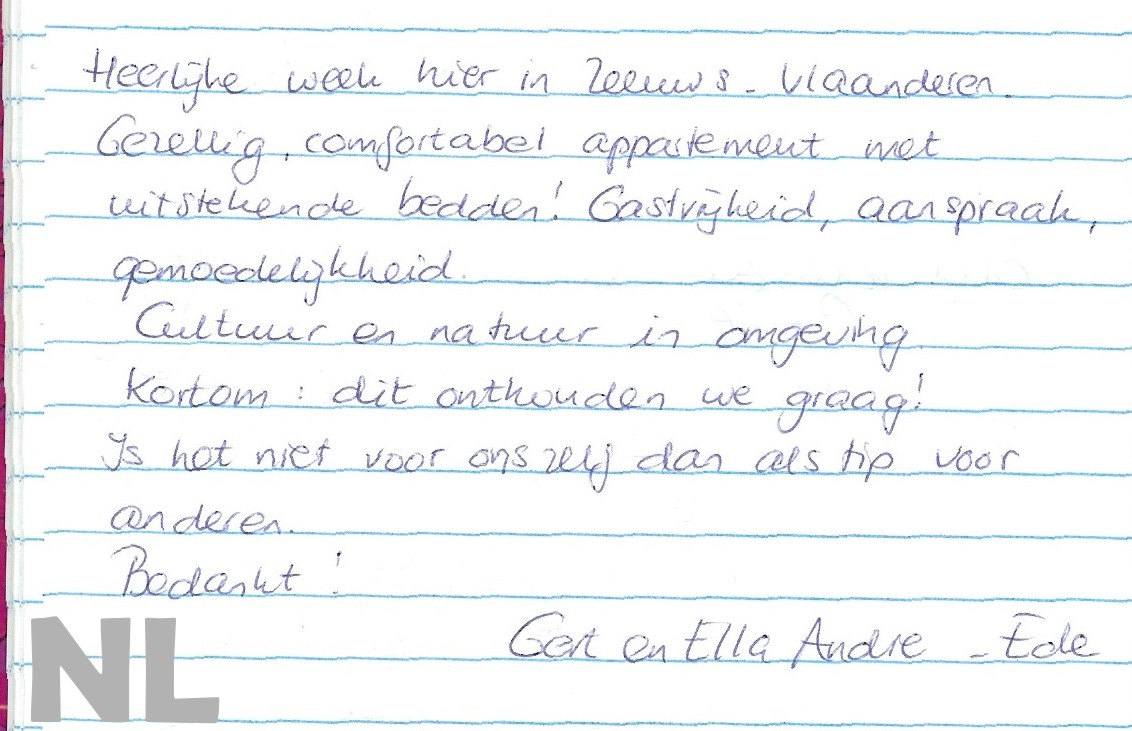 Heerlijke week hier in Zeeuws-Vlaanderen.
Gezellig, comfortabel appartement met
uitstekende bedden! Gastvrijheid, aanspraak,
gemoedelijkheid.
Cultuur en natuur in omgeving
Kortom: dit onthouden we graag!
Is het niet voor onszelf dan als tip voor
anderen.
Bedankt!
Gert en Ella Andre - Ede
NL